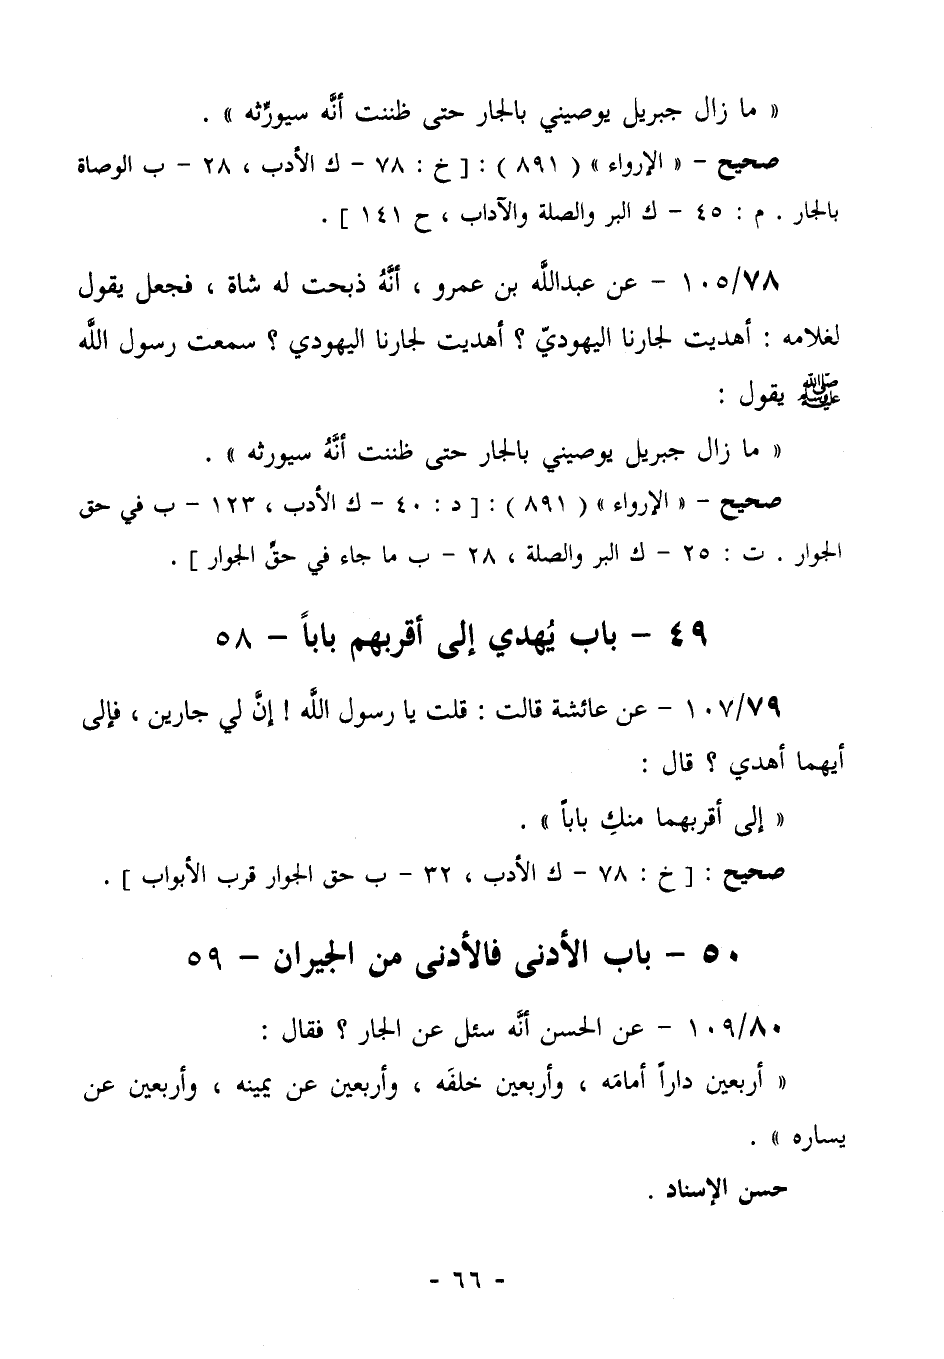 « ما زال جبريل يوصيني بالجار حتى ظننت أنَّه سيورِّثه » .
صحيح – « الإرواء » ( ٨٩١ ) : [ خ : ٧٨ – ك الأدب ، ٢٨ – ب الوصاة
بالجار . م : ٤٥ – ك البر والصلة والآداب ، ح ١٤١ ] .
١٠٥/٧٨ – عن عبدالله بن عمرو ، أنَّهُ ذبحت له شاة ، فجعل يقول
لغلامه : أهديت لجارنا اليهوديّ ؟ أهديت لجارنا اليهودي ؟ سمعت رسول اللَّه
ﷺ يقول :
« ما زال جبريل يوصيني بالجار حتى ظننت أنَّهُ سيورثه » .
صحيح – « الإرواء » ( ٨٩١ ) : [ د : ٤٠ – ك الأدب ، ١٢٣ – ب في حق
الجوار . ت : ٢٥ – ك البر والصلة ، ٢٨ – ب ما جاء في حقِّ الجوار ] .
٤٩ – باب يُهدي إلى أقربهم باباً – ٥٨
١٠٧/٧٩ – عن عائشة قالت : قلت يا رسول اللَّه ! إنَّ لي جارين ، فإلى
أيهما أهدي ؟ قال :
« إلى أقربهما منكِ باباً » .
صحيح : [ خ : ٧٨ – ك الأدب ، ٣٢ – ب حق الجوار قرب الأبواب ] .
٥٠ – باب الأدنى فالأدنى من الجيران – ٥٩
١٠٩/٨٠ – عن الحسن أنَّه سئل عن الجار ؟ فقال :
« أربعين داراً أمامَه ، وأربعين خلفَه ، وأربعين عن يمينه ، وأربعين عن
يساره » .
حسن الإسناد .
- ٦٦ -